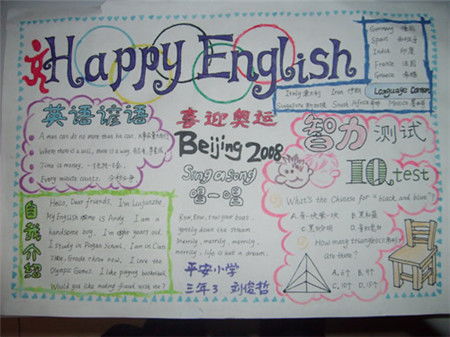 Happy English
Germany 德国
Spain 西班牙
India 印度
France 法国
Greece 希腊
Language Corner
Italy 意大利 Iran 伊朗
Singapore 新加坡 South Africa 南非 Mexico 墨西哥
英语谚语
A man can do no more than he can.
Where there is a will, there is a way.
Time is money.
Every minute counts.
喜迎奥运
Beijing 2008
Sing a song
唱一唱
Row, row, row your boat
gently down the stream
Merrily, merrily, merrily,
merrily, life is but a dream.
平安小学
三年3 刘俊哲
智力测试
IQ test
What's the Chinese for "black and blue"?
How many triangles
are there?
A. 6个 B. 8个
C. 10个 D. 15个
自我介绍
Hello, Dear friends, I'm Liujunzhe.
My English name is Andy. I am a
handsome boy, I'm eight years old.
I study in Pingan School, I am in Class
I love the
Olympic Games. I like playing basketball.
Would you like making friend with me?